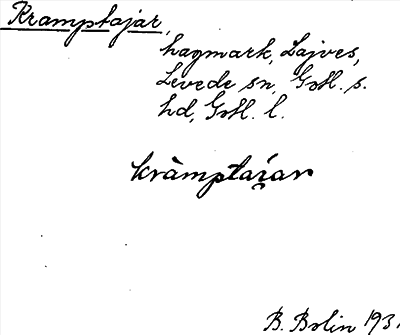 Kramptajar,
hagmark, Lajves,
Levede sn, Gotl. s.
hd, Gotl. l.
kràmptaɪ̯ar
B. Bolin 193.